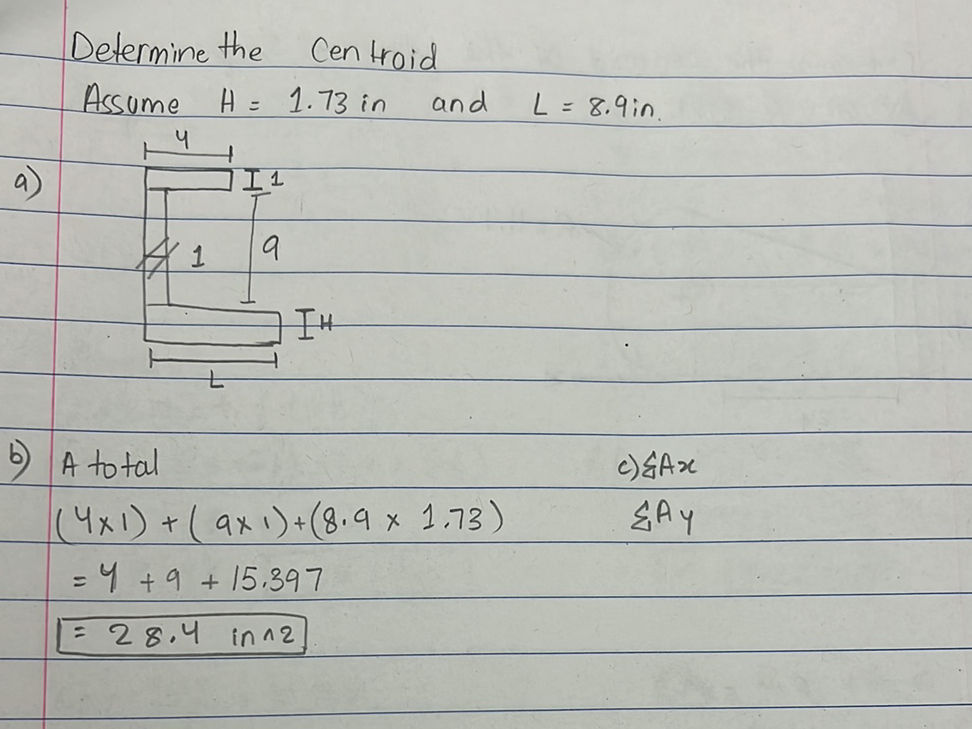 Determine the Centroid
Assume H = 1.73 in and L = 8.9in.
4
a)
1
1
9
H
L
b) A total
(4x1) + (9x1)+(8.9 x 1.73)
= 4 + 9 + 15.397
= 28.4 in^2
c) ΣAx
ΣAy